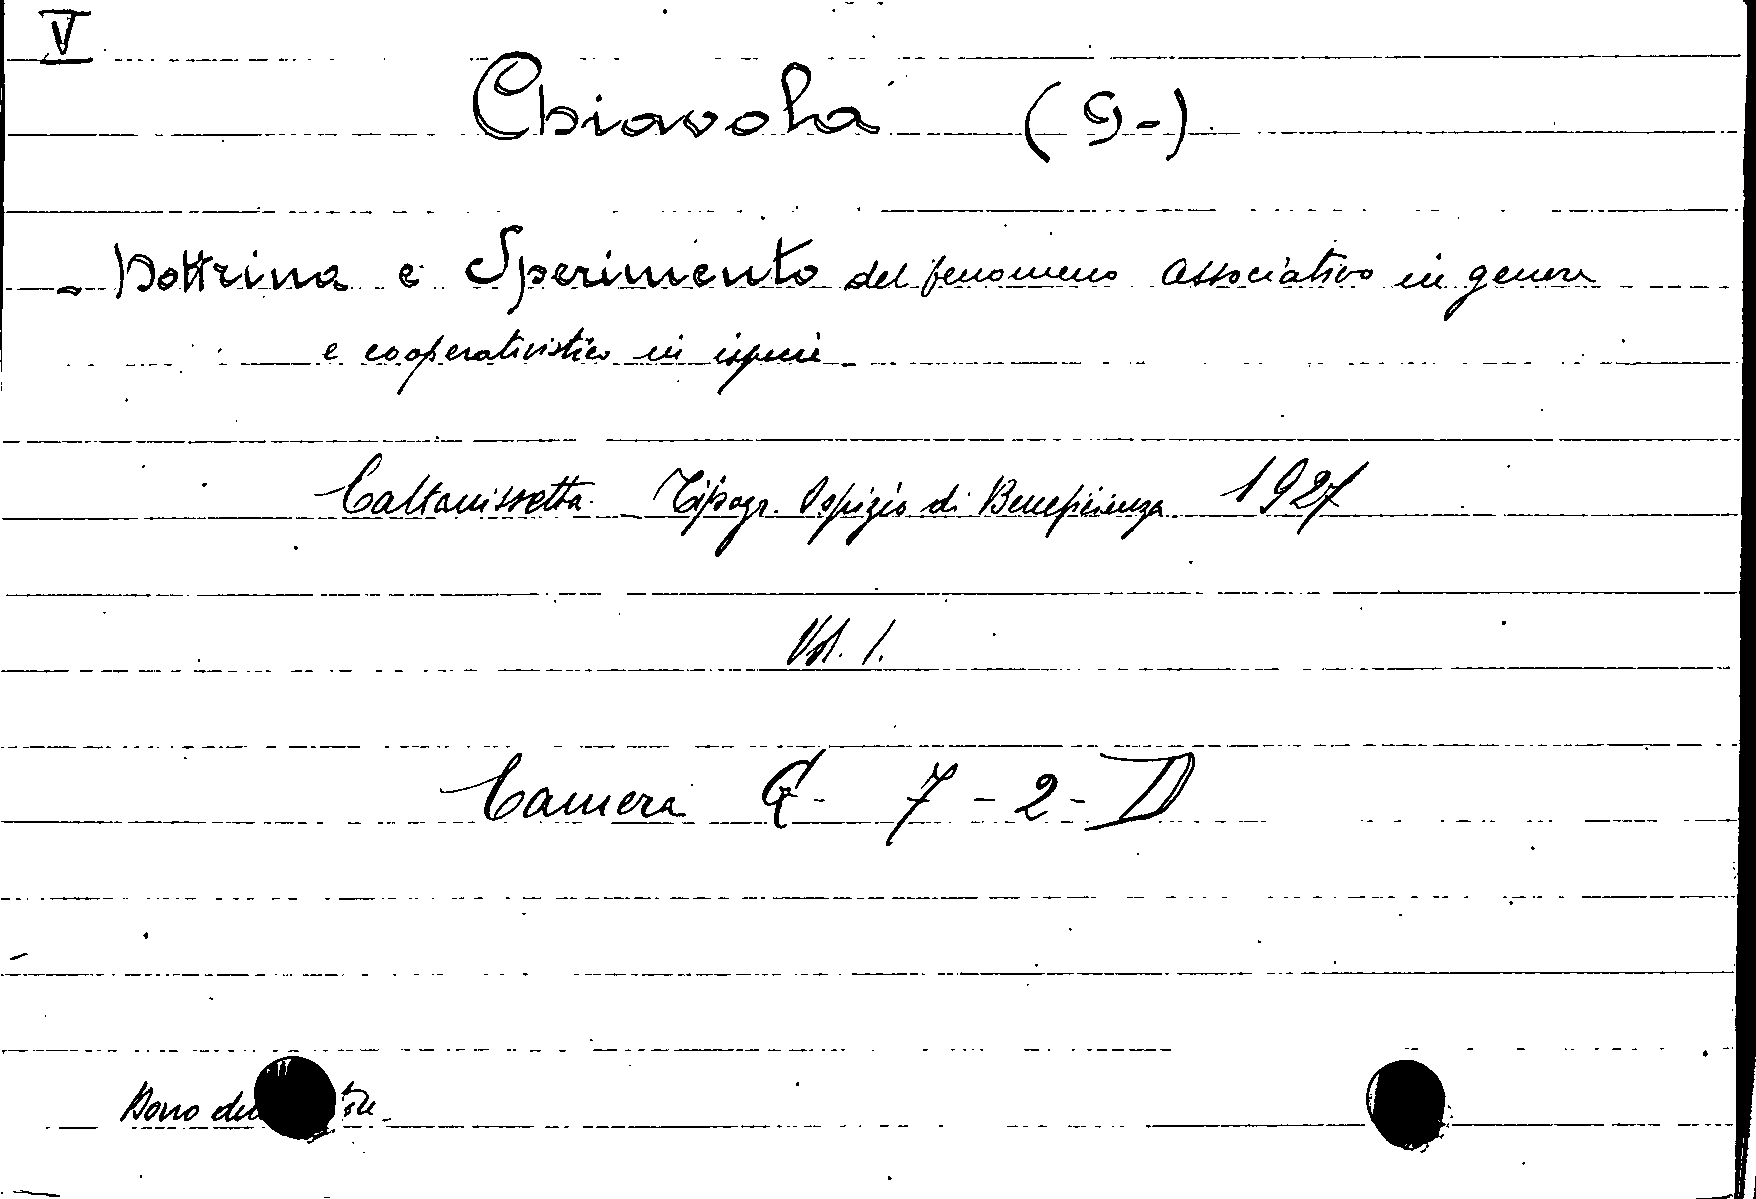 V
Chiavola (G-)
- Dottrina e Sperimento del fenomeno associativo in genere
e cooperativistico in ispecie -
Caltanissetta - Tipogr. Ospizio di Beneficienza 1927
Vol. 1.
Camera - 7 - 2 - D
Dono